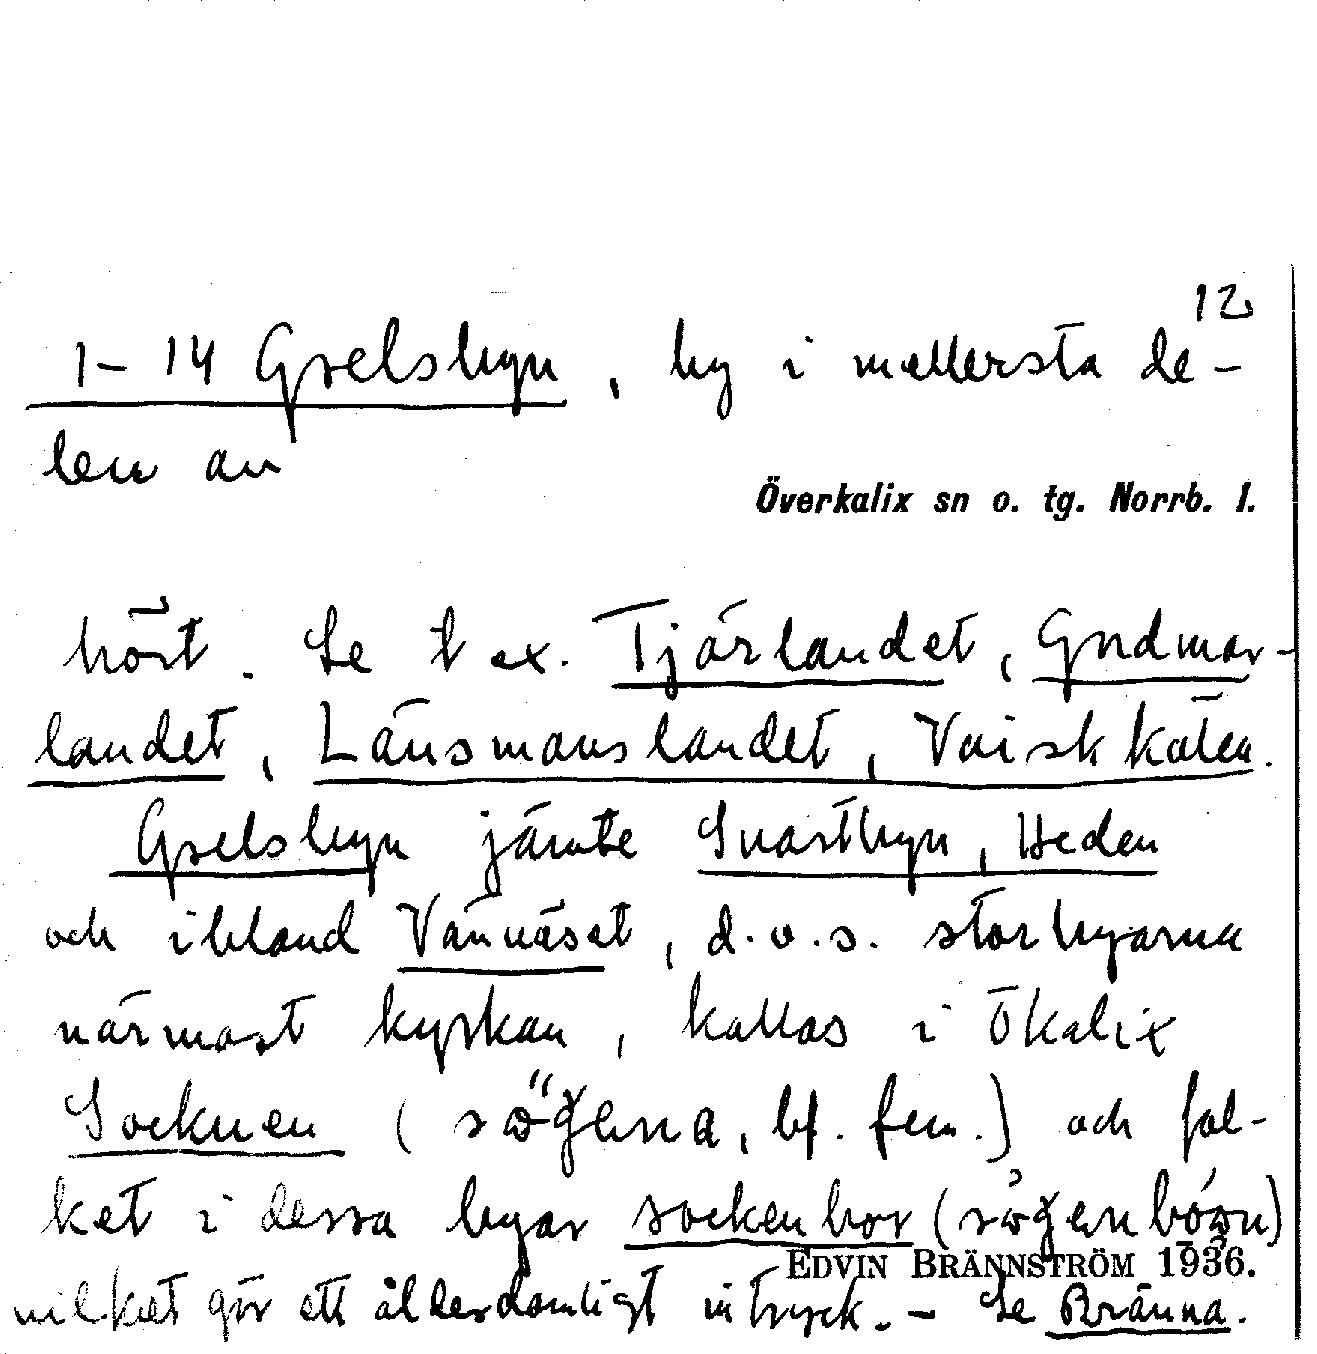 12
1–14 Grelsbyn, by i mellersta de-
len av
Överkalix sn o. tg. Norrb. l.
höst. Se t ex. Tjärlandet, Gudmor-
landet, Länsmanslandet, Vaiskkölen.
Grelsbyn jämte Svartbyn, Heden
och ibland Vännäset, d.v.s. storbyarna
närmast kyrkan, kallas i Ökalix
Socknen ( bf. fem.) och fol-
ket i dessa byar sockenbor
EDVIN BRÄNNSTRÖM 1936.
vilket gör ett ålderdomligt intryck. – Se Bränna.